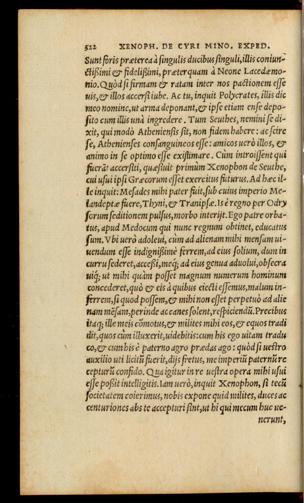 522 XENOPH. DE CYRI MINO. EXPED.
Sunt foris præterea à singulis ducibus singuli, illis coniun-
ctißimi & fidelißimi, præterquam à Neone Lacedæmo-
nio. Quòd si firmam & ratam inter nos pactionem esse
uis, & illos accersi iube. Ac tu, inquit Polycrates, illis dic
meo nomine, ut arma deponant, & ipse etiam ense depo-
sito cum illis unà ingredere. Tum Seuthes, nemini se di-
xit, qui modò Atheniensis sit, non fidem habere: ac scire
se, Athenienses consanguineos esse: amicos uerò illos, &
animo in se optimo esse existimare. Cùm introissent qui
fuerāt accersiti, quæsiuit primùm Xenophon de Seuthe,
cui usui ipsi Græcorum esset exercitus futurus. Ad hæc il-
le inquit: Mesades mihi pater fuit, sub cuius imperio Me-
landeptæ fuere, Thyni, & Tranipsæ. Is è regno per Odry
sorum seditionem pulsus, morbo interijt. Ego patre orba-
tus, apud Medocum qui nunc regnum obtinet, educatus
sum. Vbi uerò adoleui, cùm ad alienam mihi mensam ui-
uendum esse indignißimè ferrem, ad eius solium, dum in
curru sederet, accessi, meq; ad eius genua aduolui, obsecra
uiq; ut mihi quàm posset magnum numerum hominum
concederet, quò & eis à quibus eiecti essemus, malum in-
ferrem, si quod possem, & mihi non esset perpetuò ad alie
nam mēsam, perinde ac canes solent, respiciendū. Precibus
itaq; ille meis cōmotus, & milites mihi eos, & equos tradi
dit, quos cùm illuxerit, uidebitis: cum his ego uitam tradu
co, & cum his è paterno agro prædas ago: quòd si uestro
auxilio uti licitū fuerit, dijs fretus, me imperiū paternū re
cepturū confido. Qua igitur in re uestra opera mihi usui
esse poßit intelligitis. Iam uerò, inquit Xenophon, si tecū
societatem coierimus, nobis expone quid milites, duces ac
centuriones abs te accepturi sint, ut hi qui mecum huc ue-
nerunt,